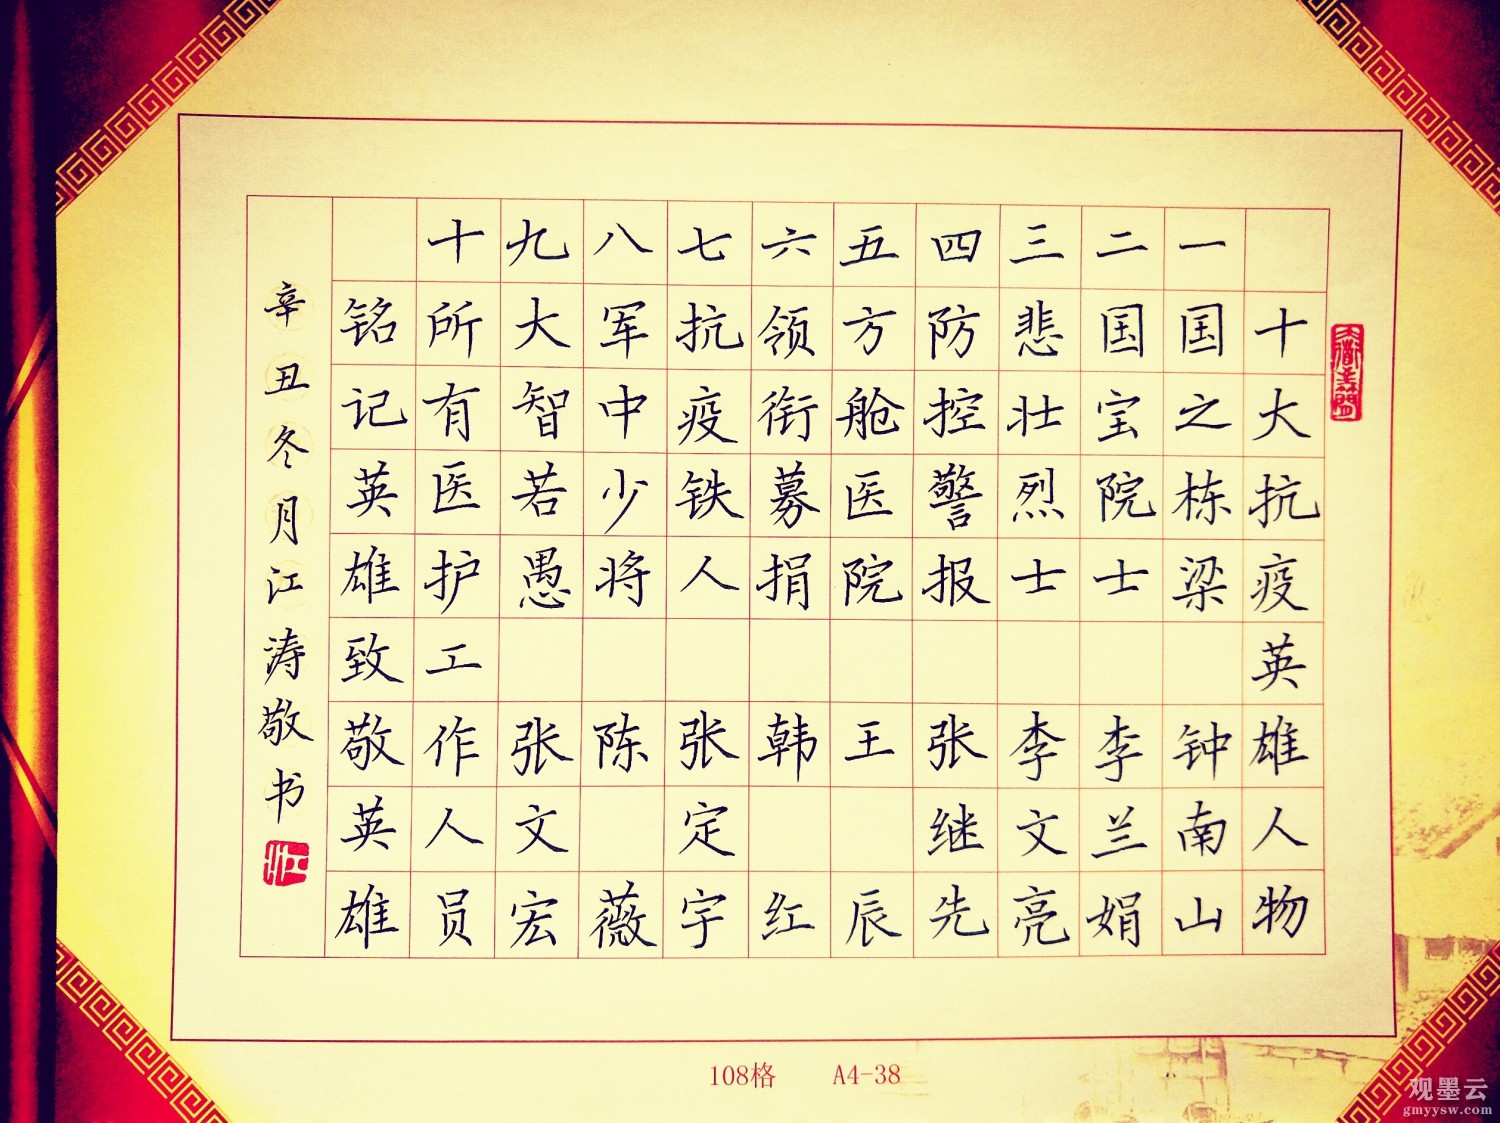 十大抗疫英雄人物
一国之栋梁 钟南山
二国宝院士 李兰娟
三悲壮烈士 李文亮
四防控警报 张继先
五方舱医院 王辰
六领衔募捐 韩红
七抗疫铁人 张定宇
八军中少将 陈薇
九大智若愚 张文宏
十所有医护工作人员
铭记英雄致敬英雄
辛丑冬月江涛敬书
108格 A4-38
观墨云
gmyysw.com